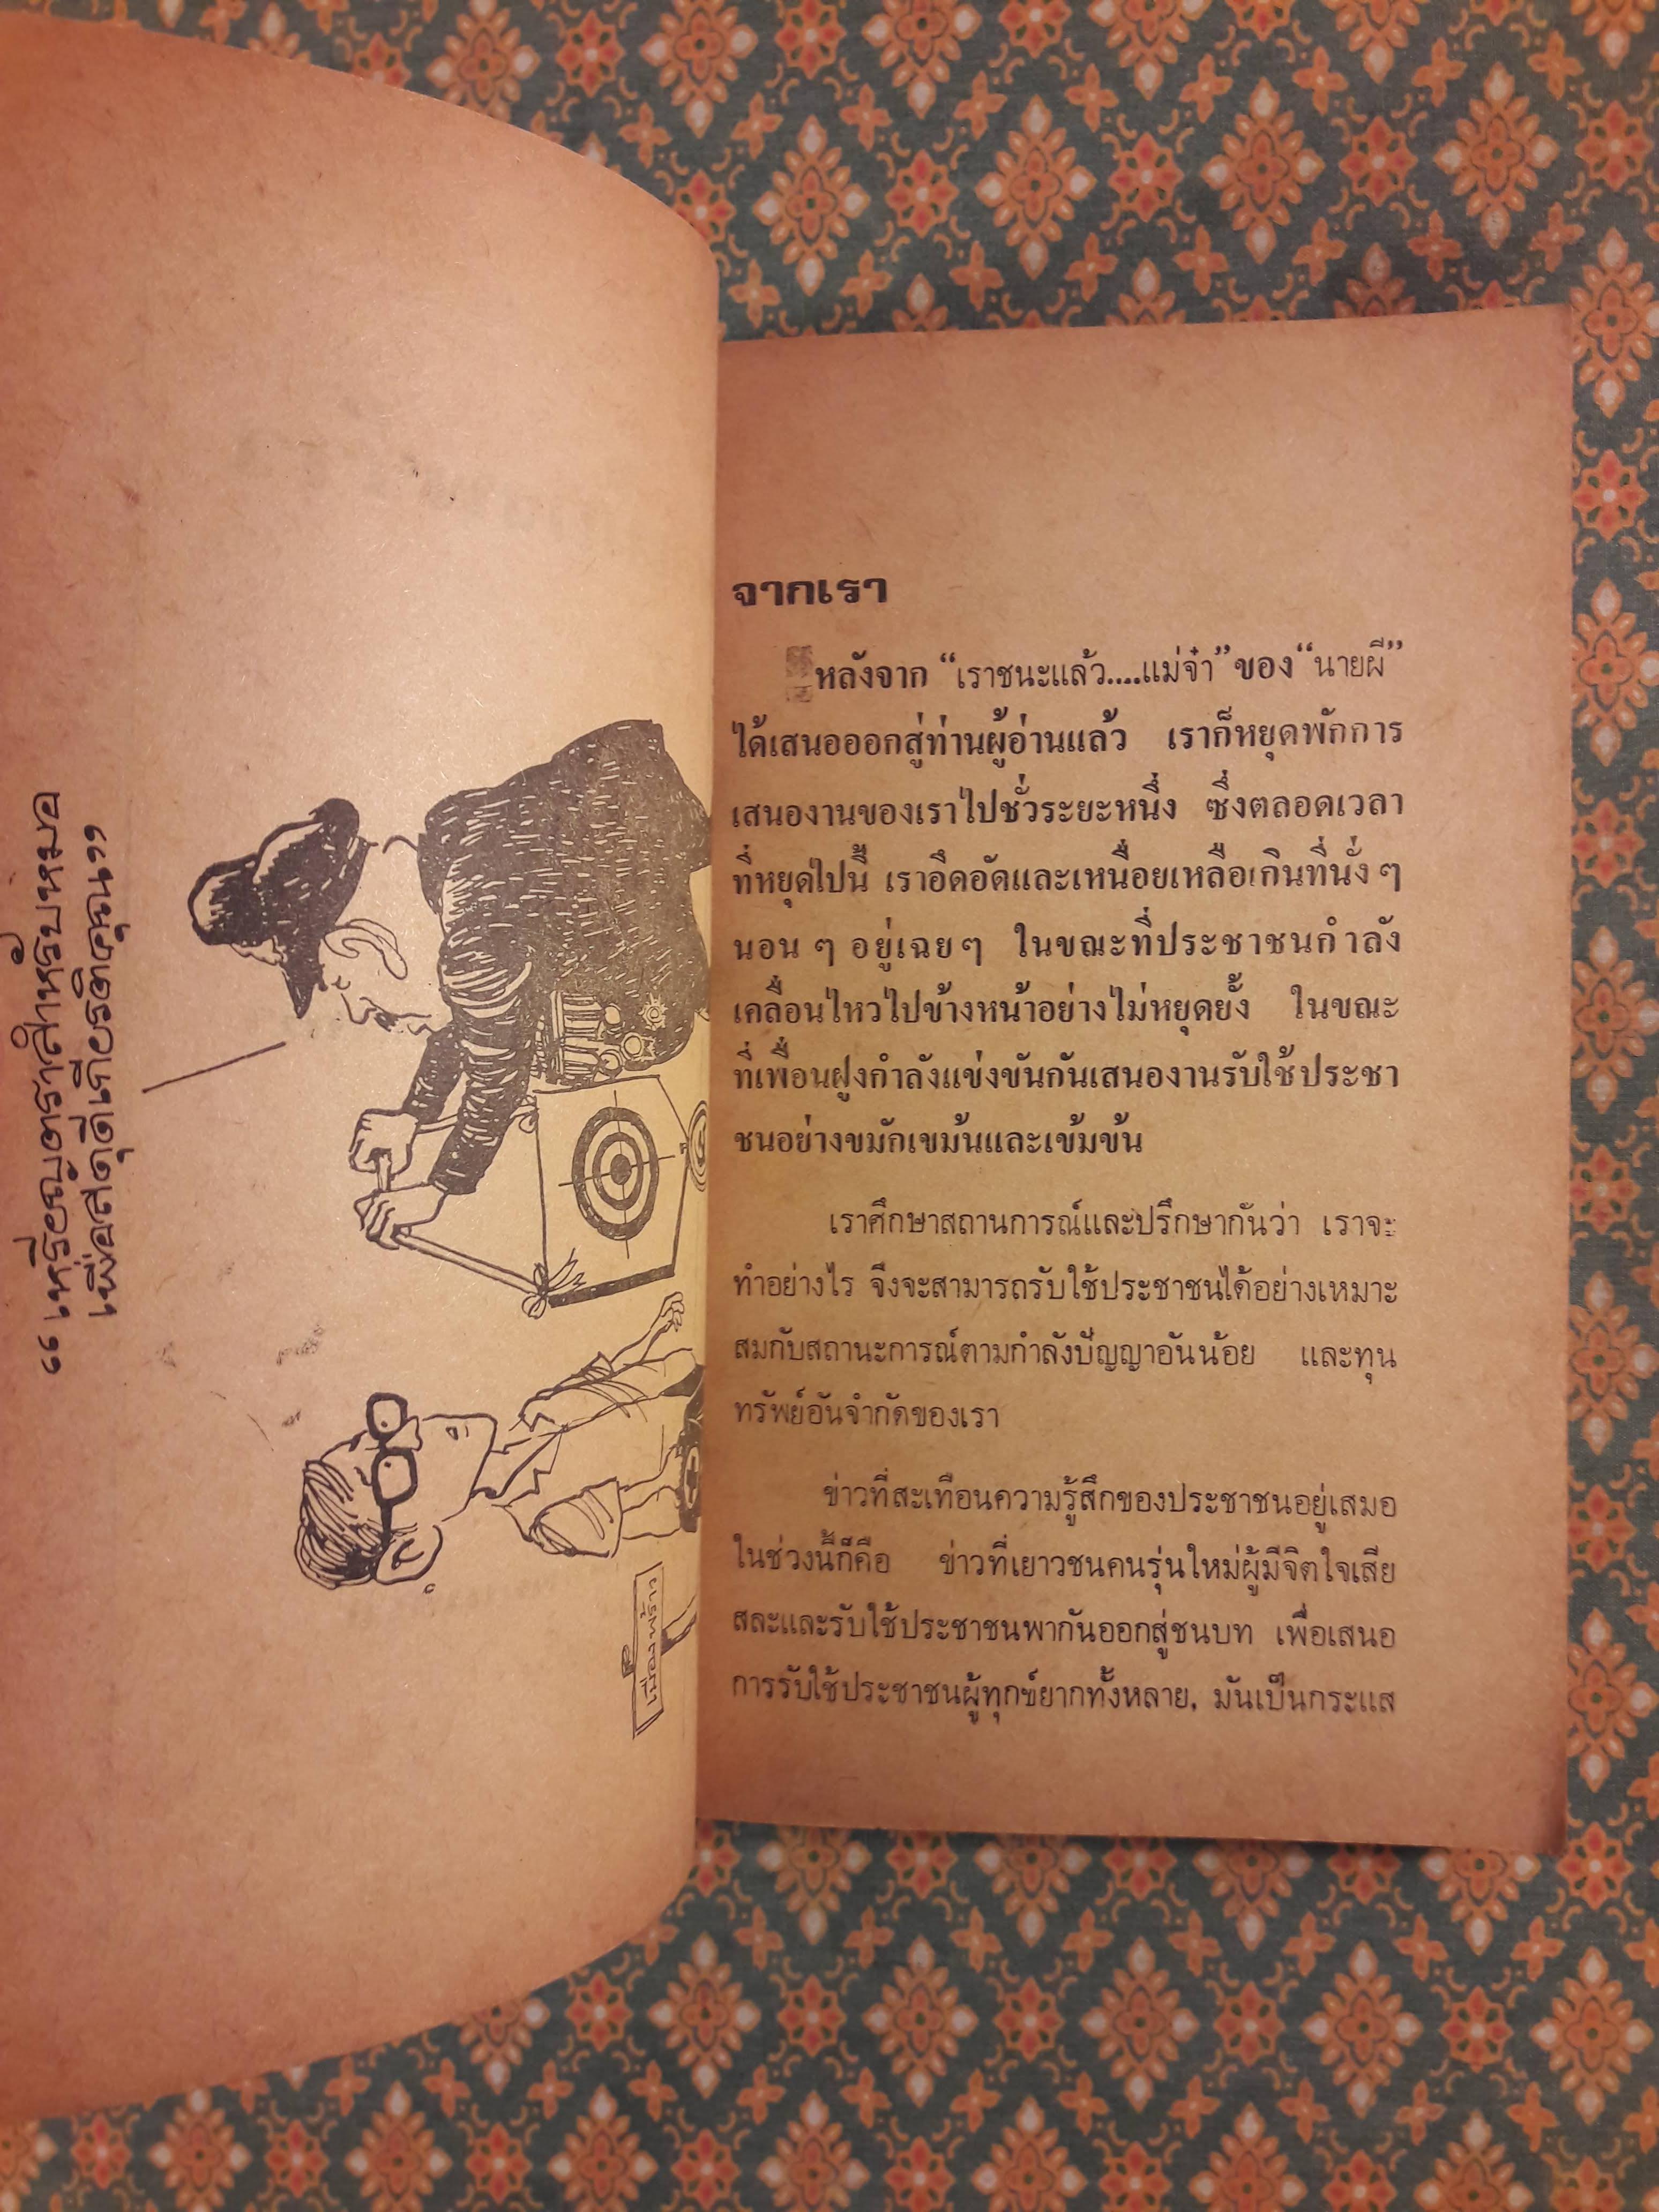 “ เหรียญตราสำหรับหมอ
เพื่อสดุดีเกียรติคุณฯ”
จากเรา
หลังจาก “เราชนะแล้ว....แม่จ๋า” ของ “นายผี”
ได้เสนอออกสู่ท่านผู้อ่านแล้ว เราก็หยุดพักการ
เสนองานของเราไปชั่วระยะหนึ่ง ซึ่งตลอดเวลา
ที่หยุดไปนี้ เราอึดอัดและเหนื่อยเหลือเกินที่นั่ง ๆ
นอน ๆ อยู่เฉย ๆ ในขณะที่ประชาชนกำลัง
เคลื่อนไหวไปข้างหน้าอย่างไม่หยุดยั้ง ในขณะ
ที่เพื่อนฝูงกำลังแข่งขันกันเสนองานรับใช้ประชา
ชนอย่างขมักเขม้นและเข้มข้น
เราศึกษาสถานการณ์และปรึกษากันว่า เราจะ
ทำอย่างไร จึงจะสามารถรับใช้ประชาชนได้อย่างเหมาะ
สมกับสถานะการณ์ตามกำลังปัญญาอันน้อย และทุน
ทรัพย์อันจำกัดของเรา
ข่าวที่สะเทือนความรู้สึกของประชาชนอยู่เสมอ
ในช่วงนี้ก็คือ ข่าวที่เยาวชนคนรุ่นใหม่ผู้มีจิตใจเสีย
สละและรับใช้ประชาชนพากันออกสู่ชนบท เพื่อเสนอ
การรับใช้ประชาชนผู้ทุกข์ยากทั้งหลาย, มันเป็นกระแส